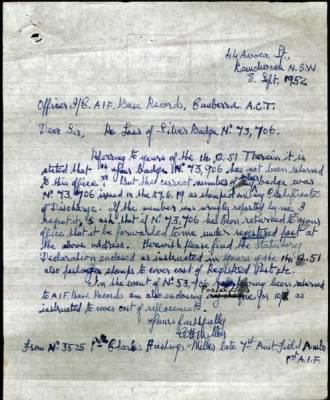 44 Avoca St.,
Randwick N.S.W
8. Sept. 1952
Officer I/C. A.I.F. Base Records, Canberra A.C.T.
Dear Sir, Re Loss of Silver Badge No. 73,906.
Referring to yours of the 14.12.51 Therein it is
stated that "Silver Badge No 73,906 has not been returned
to this office". But the correct number of my badge was
No 73,906 issued on the 27.6.19 as stamped on my Certificate
of Discharge. If the number was wrongly reported by me I
regret, & ask that if No 73,906 has been returned to your
office that it be forwarded to me under registered post at
the above address. Herewith please find the Statutory
Declaration enclosed as instructed in yours of the 14.12.51
also postage stamps to cover cost of Registered Post etc.
In the event of No 53,906 not being returned
to A.I.F. Base Records am also enclosing Postal Note for
instructed to cover cost of replacement. as
Yours faithfully
C H Miller
From No 3525 Pte Charles Hastings Miller late 7th Aust Field Amb.
1st A.I.F.